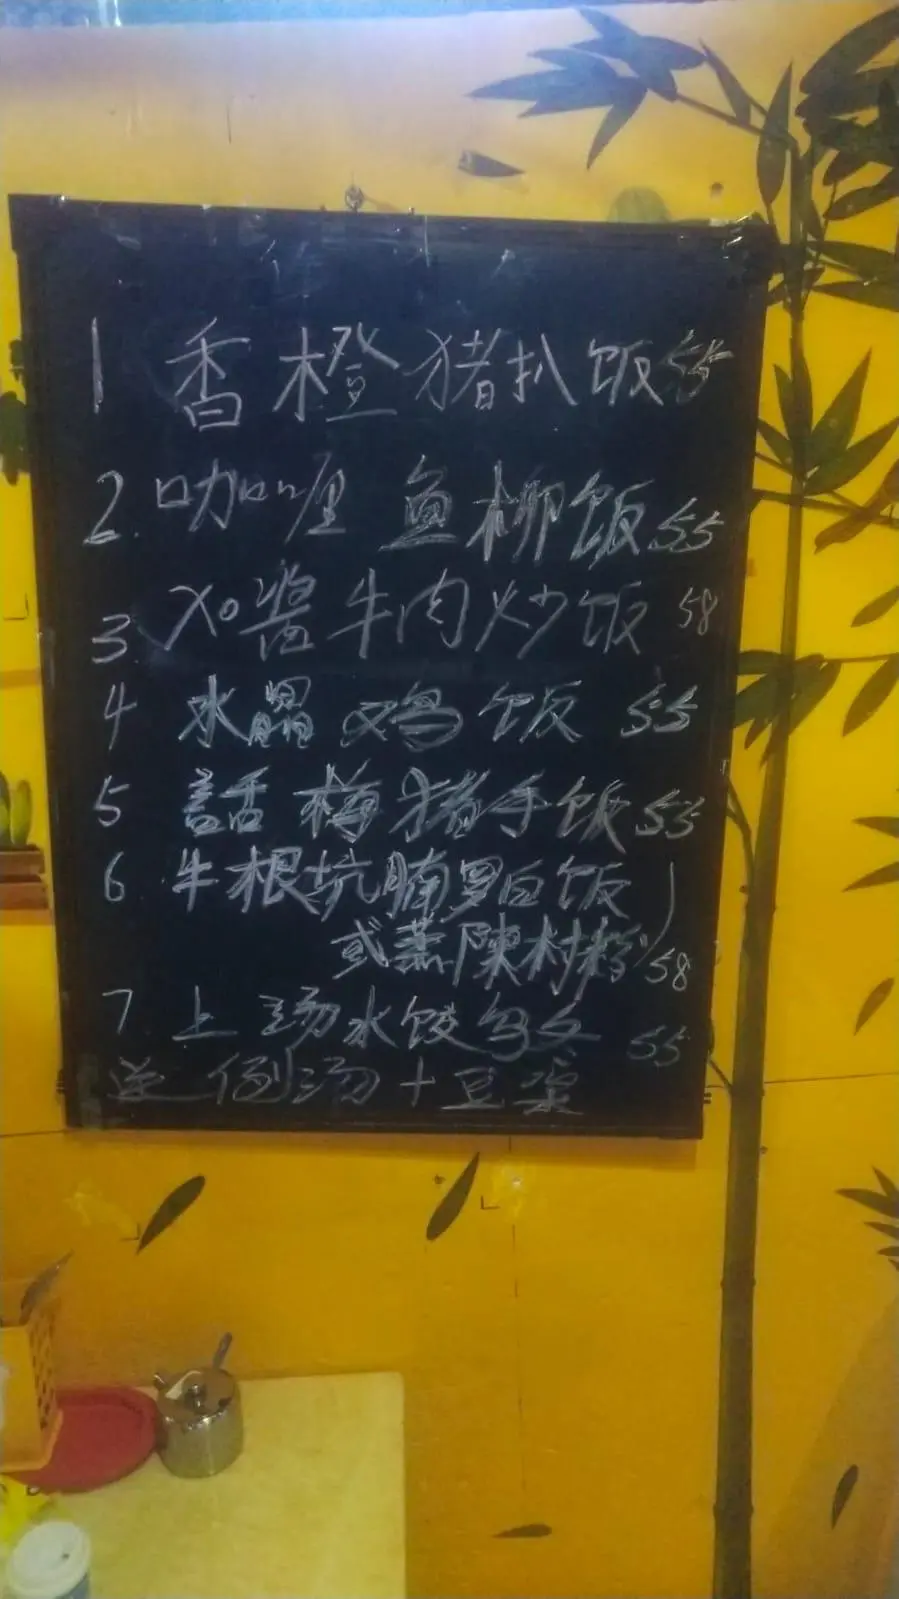 1 香橙猪扒饭 55
2. 咖喱鱼柳饭 55
3 XO酱牛肉炒饭 58
4 水晶鸡饭 55
5 話梅猪手饭 55
6 牛根坑腩罗白饭
或蒸陳村粉 58
7 上汤水饺乌冬 55
送例汤+豆浆